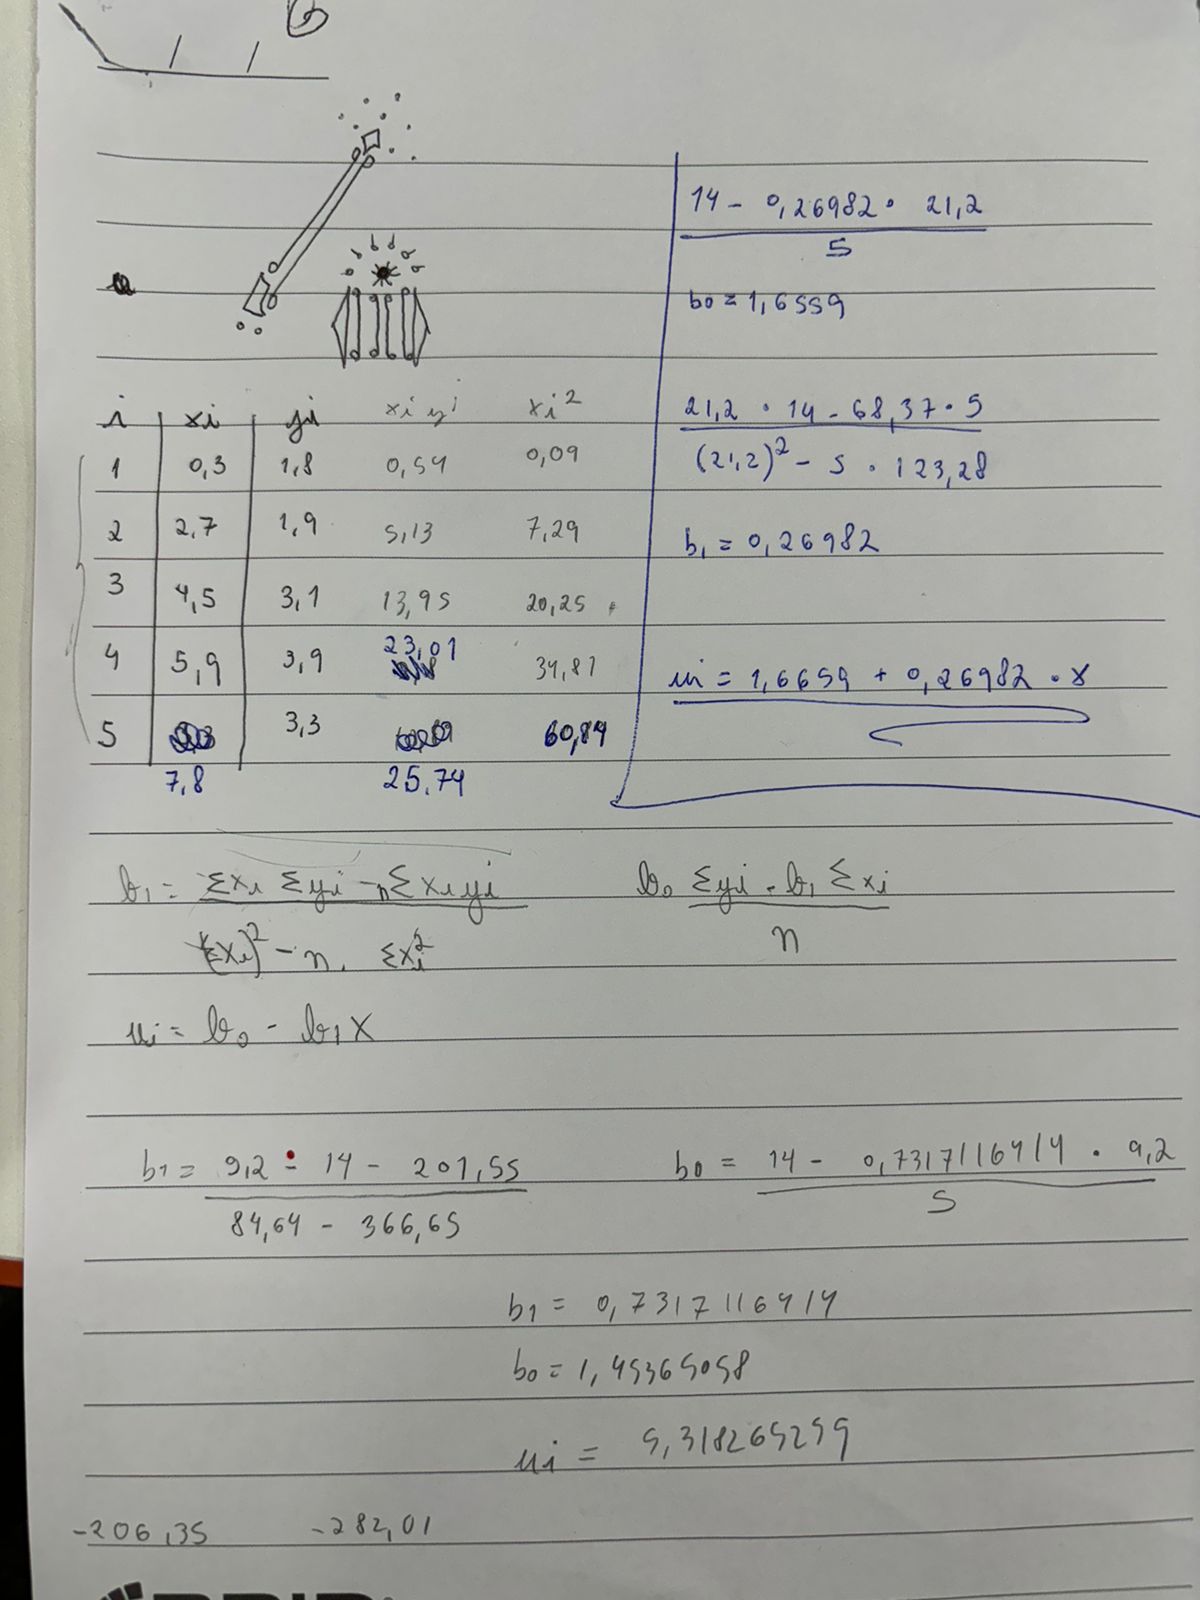 i xi yi xi yi xi²
1 0,3 1,8 0,54 0,09
2 2,7 1,9 5,13 7,29
3 4,5 3,1 13,95 20,25
4 5,9 3,9 23,01 34,81
5 7,8 3,3 25,74 60,84
14 - 0,26982 • 21,2
5
b0 = 1,6559
21,2 • 14 - 68,37 • 5
(21,2)² - 5 • 123,28
b₁ = 0,26982
ui = 1,6659 + 0,26982 • x
b₁ = Σxi Σyi - nΣxi yi
(Σxi)² - n. Σxi²
b₀ Σyi - b₁ Σxi
n
ui = b₀ - b₁x
b1 = 9,2 • 14 - 201,55
84,64 - 366,65
b0 = 14 - 0,7317116414 • 9,2
5
b1 = 0,7317116414
b0 = 1,45365058
ui = 5,318265259
-206,35 -282,01